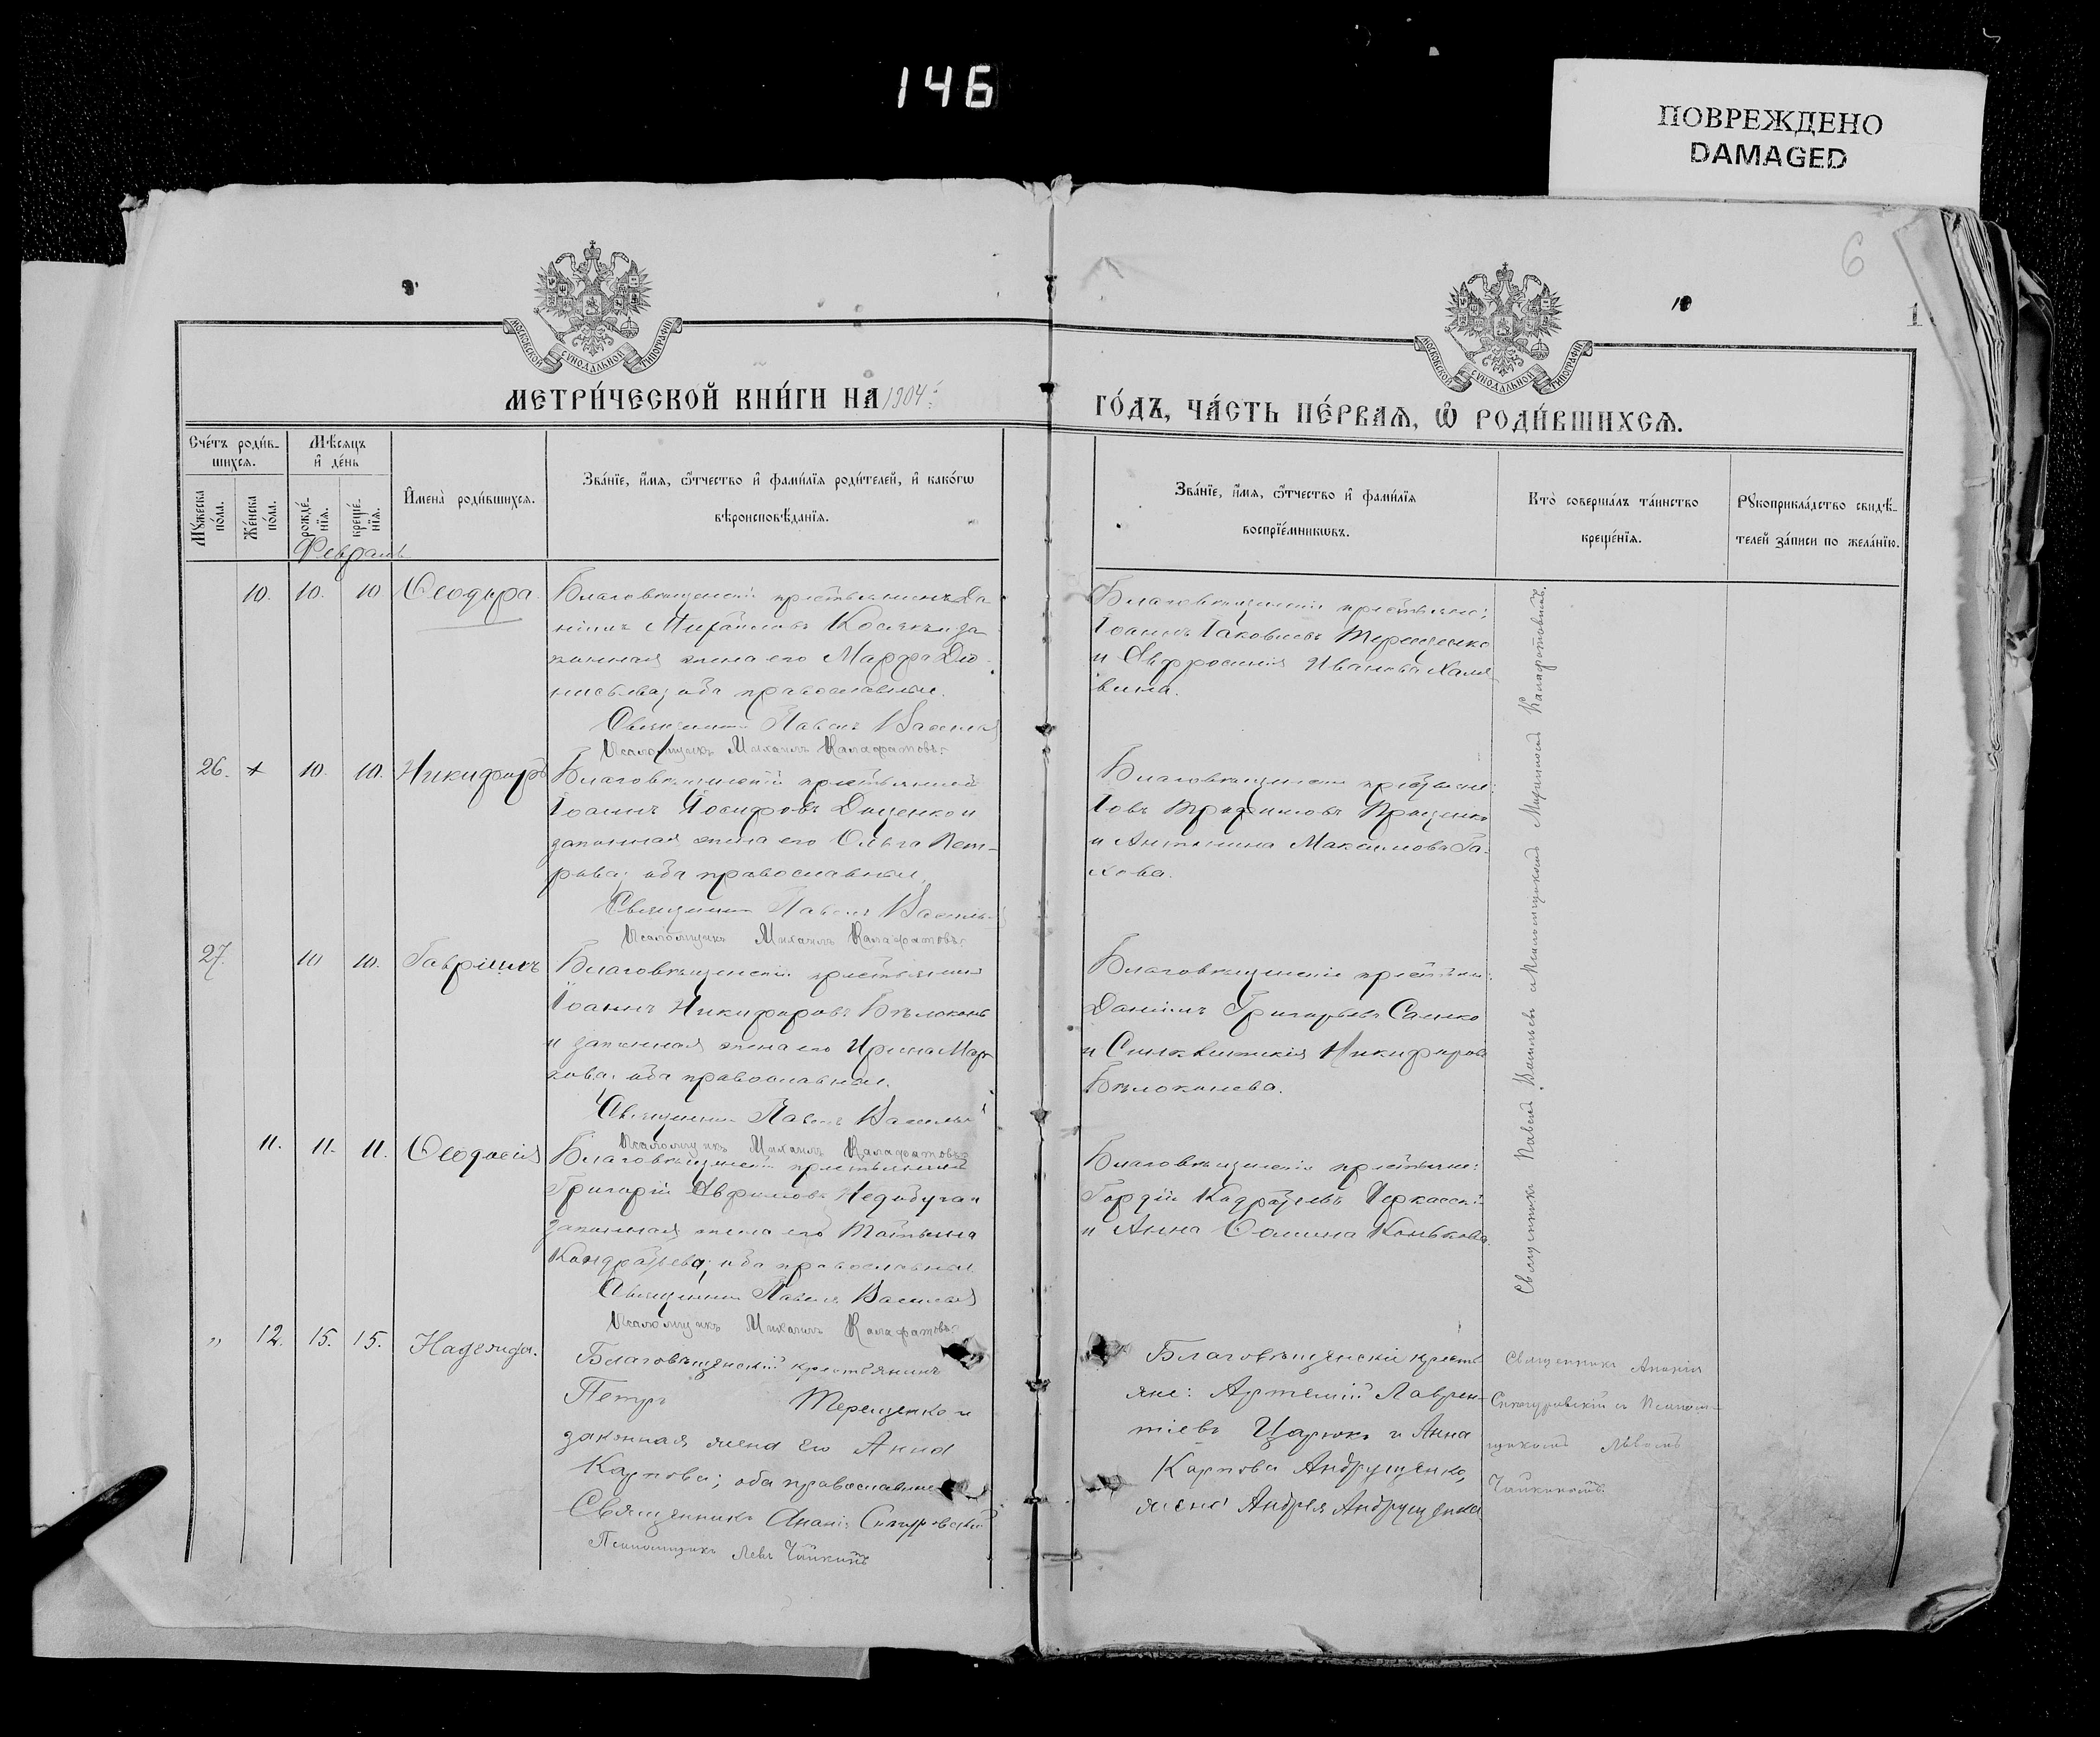 146
ПОВРЕЖДЕНО
DAMAGED
6
МОСКОВСКОЙ СѴНОДАЛЬНОЙ ТИПОГРАФІИ
МОСКОВСКОЙ СѴНОДАЛЬНОЙ ТИПОГРАФІИ
МЕТРИ́ЧЕСКОЙ КНИ́ГИ НА 1904
ГО́ДЪ, ЧА́СТЬ ПЕ́РВАѦ, Ѡ҆ РОДИ́ВШИХСѦ.
Сче́тъ роди́в-
шихсѧ.
Мꙋ́жеска по́ла.
Же́нска по́ла.
Мѣ́сѧцъ
и҆ де́нь
рожде́-нїѧ.
креще́-нїѧ.
И҆мена̀ роди́вшихсѧ.
Зва́нїе, и҆́мѧ, ѻ҆́тчество и҆ фами́лїѧ роди́телей, и҆ како́гѡ
вѣроисповѣ́данїѧ.
Зва́нїе, и҆́мѧ, ѻ҆́тчество и҆ фами́лїѧ
воспрїе́мникѡвъ.
Кто̀ соверша́лъ та́инство
креще́нїѧ.
Рꙋкоприкла́дство свидѣ́-
телей за́писи по жела́нїю.
Февраль
10. 10. 10 Ѳеодора.
Благовѣщенскій крестьянинъ Да-
ніилъ Михайловъ Косякъ и за-
конная жена его Марфа Діо-
нисьева; оба православные.
Священникъ Павелъ Васильев
Псаломщикъ Михаилъ Калафатовъ.
Благовѣщенскіе крестьяне:
Іоаннъ Іаковлевъ Терещенко
и Евфросинія Иванова Халя-
вина.
26. 10. 10. Никифоръ
Благовѣщенскій крестьянинъ
Іоаннъ Іосифовъ Доценко и
законная жена его Ольга Пет-
рова; оба православные.
Священникъ Павелъ Васильев
Псаломщикъ Михаилъ Калафатовъ.
Благовѣщенскіе крестьяне:
Іовъ Трофимовъ Проценко
и Антонина Максимова Га-
хова.
27. 10 10. Гавріилъ
Благовѣщенскій крестьянинъ
Іоаннъ Никифоровъ Бѣлоконь
и законная жена его Ирина Мар-
кова; оба православные.
Священникъ Павелъ Васильев
Псаломщикъ Михаилъ Калафатовъ.
Благовѣщенскіе крестьяне:
Даніилъ Григорьевъ Сашко
и Никифорова
Бѣлоконева.
11. 11. 11. Ѳеодосія
Благовѣщенскій крестьянинъ
Григорій Евфимовъ Недобуга и
законная жена его Татьяна
Кондратьева; оба православные.
Священникъ Павелъ Васильев
Псаломщикъ Михаилъ Калафатовъ.
Благовѣщенскіе крестьяне:
Гордій Кодратьевъ Черкасск
и Анна Ѳомина Конькова.
Священникъ Павелъ Васильевъ с Псаломщикомъ Михаиломъ Калафатовымъ.
" 12. 15. 15. Надежда.
Благовѣщенскій крестьянинъ
Петръ Терещенко и
законная жена его Анна
Карпова; оба православные
Священникъ Ананія Снегуровскій
Псаломщикъ Левъ Чайкинъ
Благовѣщенскіе кресть-
яне: Артемій Лаврен-
тіевъ Царюкъ и Анна
Карпова Андрущенко,
жена Андрея Андрущенка
Священникъ Ананія
Снегуровскій съ Псалом-
щикомъ Львомъ
Чайкинымъ